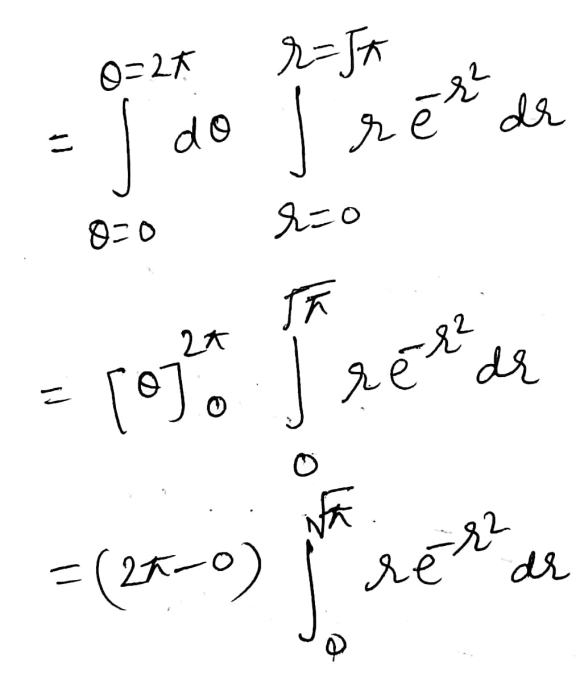 = ∫_{θ=0}^{θ=2π} dθ ∫_{r=0}^{r=√π} r e^{-r²} dr
= [θ]_0^{2π} ∫_0^{√π} r e^{-r²} dr
= (2π-0) ∫_0^{√π} r e^{-r²} dr